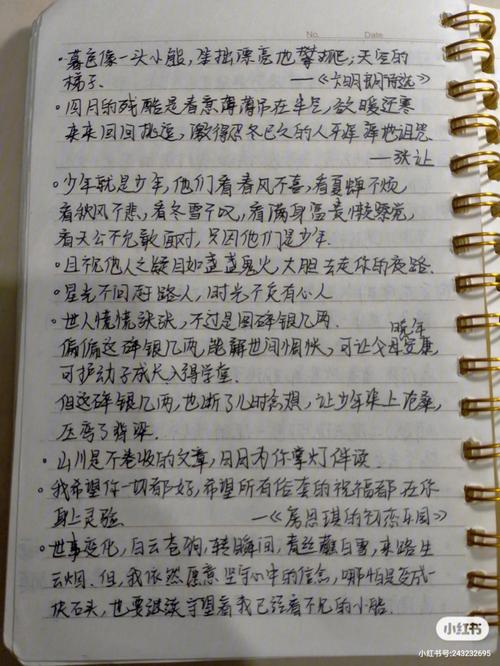 No. Date
·暮色像一头小熊,笨拙漂亮地攀爬;天空的
梯子. ——《大明朗诗选》
·四月的残酷是春意薄薄吊在半空,欲暖还寒
来来回回挑逗,激得恐冬已久的人牙痒痒地诅咒
——张让
·少年就是少年,他们看春风不喜,看夏蝉不烦
看秋风不悲,看冬雪不叹,看满身富贵懒察觉,
看天公不允敢面对,只因他们是少年.
·且视他人之疑目如盏盏鬼火,大胆去走你的夜路.
·星光不问赶路人,时光不负有心人
·世人慌慌张张,不过是图碎银几两.
偏偏这碎银几两,能解世间惆怅,可让父母安康
晚年
可护幼子成长入得学堂.
但这碎银几两,也断了儿时念想,让少年染上沧桑,
压弯了脊梁.
·山川是不卷收的文章,日月为你掌灯伴读.
·我希望你一切都好,希望所有俗套的祝福都在你
身上灵验. ——《房思琪的初恋乐园》
·世事变化,白云苍狗,转瞬间,青丝虽白雪,来路生
云烟.但,我依然愿意坚守心中的信念,哪怕是变成一
块石头,也要继续守望着我已经看不见的小船.
小红书
小红书号:243232695